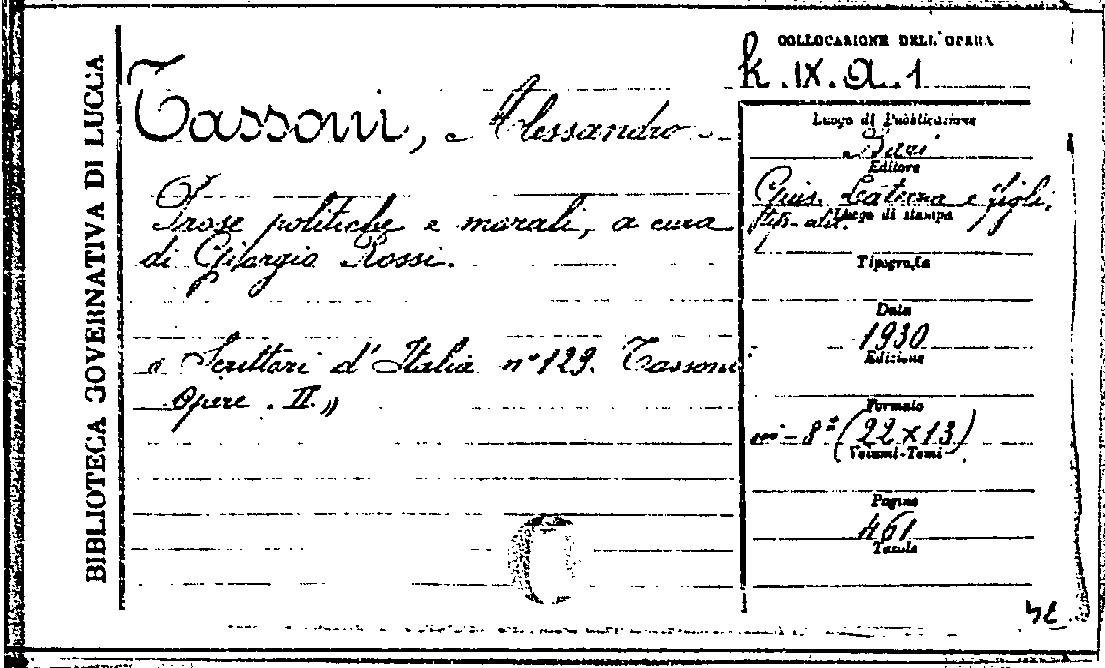 BIBLIOTECA GOVERNATIVA DI LUCCA
COLLOCAZIONE DELL'OPERA
K.IX.A.1
Tassoni, Alessandro
Prose politiche e morali, a cura
di Giorgio Rossi.
« Scrittori d'Italia n° 129. Tassoni
Opere. II.»
Luogo di Pubblicazione
Bari
Editore
Gius. Laterza e figli,
tip. edit.
Luogo di stampa
Tipografia
Data
1930
Edizione
Formato
in-8° (22x13)
Volumi-Tomi
Pagine
461
Tavole